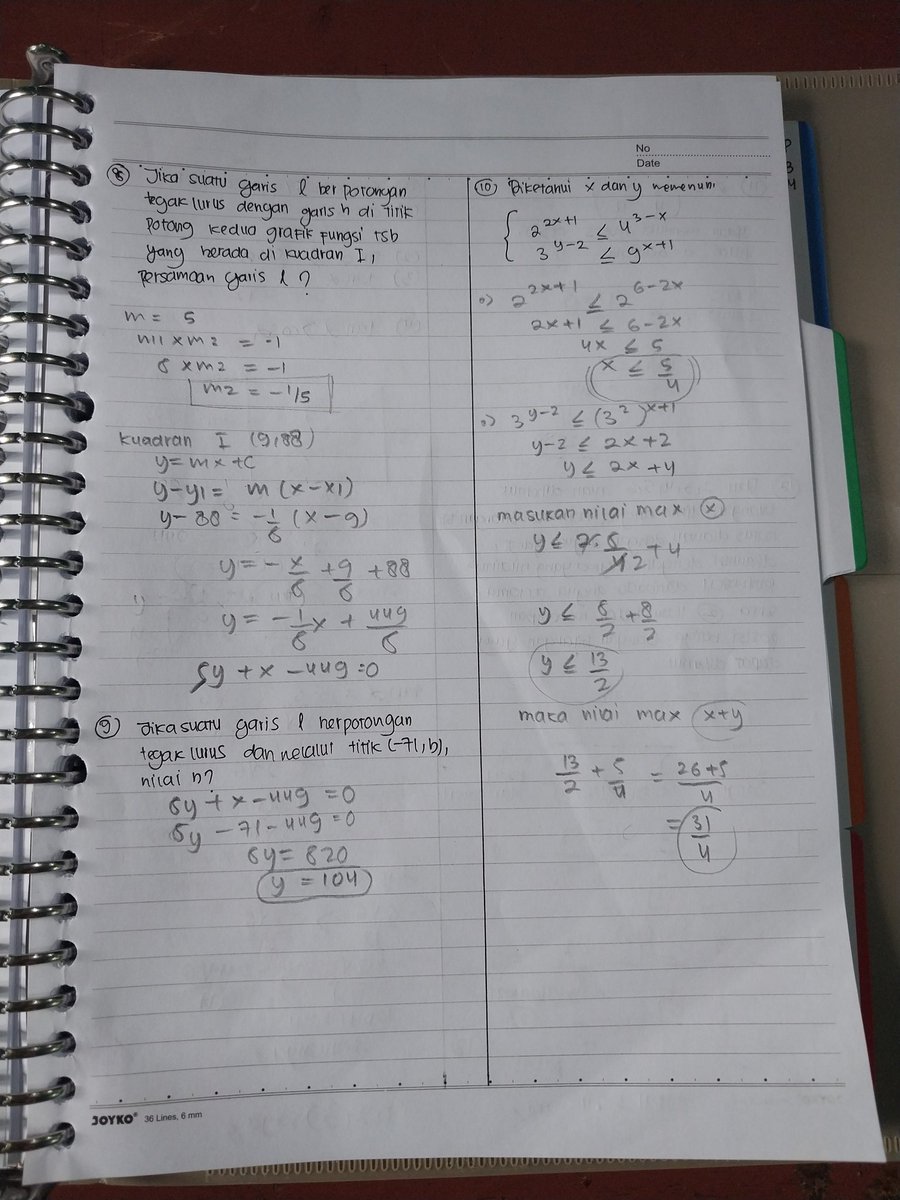 No
Date
⑧ Jika suatu garis l berpotongan
tegak lurus dengan garis h di titik
potong kedua grafik fungsi tsb
yang berada di kuadran I,
persamaan garis l ?
m = 5
m1 x m2 = -1
5 x m2 = -1
m2 = -1/5
kuadran I (9,88)
y = mx + c
y - y1 = m (x - x1)
y - 88 = -1/5 (x - 9)
y = - x/5 + 9/5 + 88
y = - 1/5 x + 449/5
5y + x - 449 = 0
⑨ Jika suatu garis l berpotongan
tegak lurus dan melalui titik (-71, b),
nilai b?
5y + x - 449 = 0
5y - 71 - 449 = 0
5y = 520
y = 104
⑩ Diketahui x dan y memenuhi
2^{2x+1} ≤ 4^{3-x}
3^{y-2} ≤ 9^{x+1}
o) 2^{2x+1} ≤ 2^{6-2x}
2x+1 ≤ 6-2x
4x ≤ 5
x ≤ 5/4
o) 3^{y-2} ≤ (3^2)^{x+1}
y-2 ≤ 2x+2
y ≤ 2x+4
masukan nilai max x
y ≤ 2. 5/4 2 + 4
y ≤ 5/2 + 8/2
y ≤ 13/2
maka nilai max x+y
13/2 + 5/4 = 26+5/4
= 31/4
JOYKO® 36 Lines, 6 mm